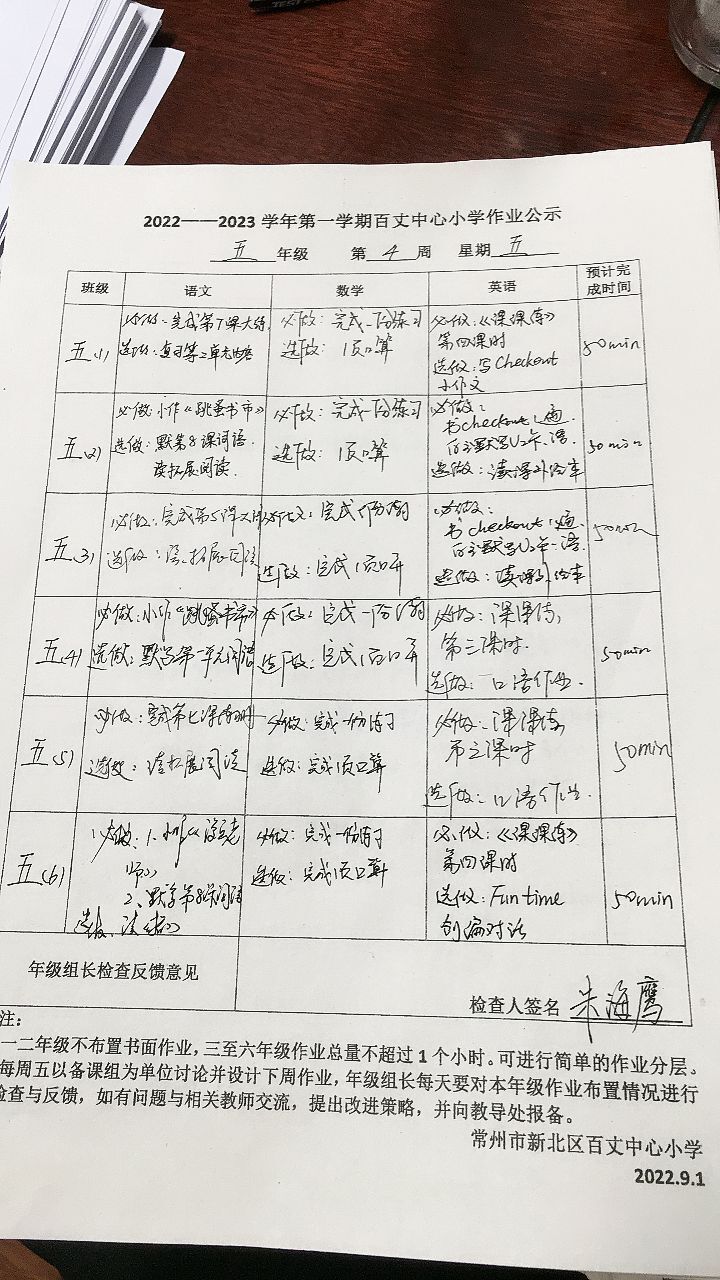 2022——2023 学年第一学期百丈中心小学作业公示
五 年级 第 4 周 星期 五
班级 语文 数学 英语 预计完成时间
五(1)
必做:完成第7课大练
选做:复习第二单元内容
必做:完成一份练习
选做:1页口算
必做:《课课练》
第四课时
选做:写Checkout
小作文
50min
五(2)
必做:小作《跳蚤书市》
选做:默第8课词语.
读拓展阅读.
必做:完成一份练习
选做:1页口算
必做:
书checkout 1遍
选做:读课外绘本
50min
五(3)
必做:完成第5课
选做:读拓展阅读
必做:完成1份练习
选做:完成1页口算
必做:
书checkout 1遍
选做:读课外绘本
50min
五(4)
必做:小作《跳蚤书市》
选做:默写第一单元词语
必做:完成一份练习
选做:完成1页口算
必做:课课练
第三课时.
选做:口语作业.
50min
五(5)
必做:完成第七课练习
选做:读拓展阅读
必做:完成一份练习
选做:完成1页口算
必做:课课练
第三课时
选做:口语作业.
50min
五(6)
必做:1.小作
2.默写第8课词语
选做:读
必做:完成一份练习
选做:完成1页口算
必做:《课课练》
第四课时
选做:Fun time
创编对话
50min
年级组长检查反馈意见
检查人签名 朱海鹰
注:
一二年级不布置书面作业,三至六年级作业总量不超过 1 个小时。可进行简单的作业分层。
每周五以备课组为单位讨论并设计下周作业,年级组长每天要对本年级作业布置情况进行
检查与反馈,如有问题与相关教师交流,提出改进策略,并向教导处报备。
常州市新北区百丈中心小学
2022.9.1